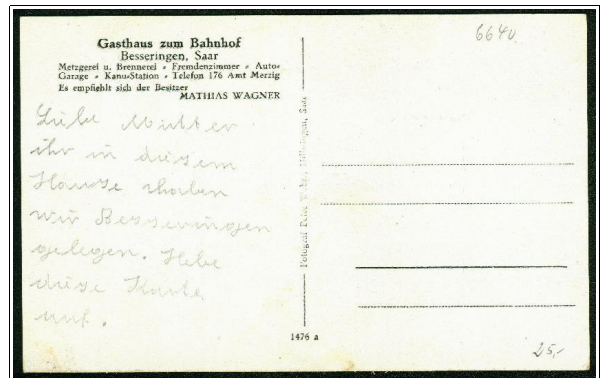 6640
Gasthaus zum Bahnhof
Besseringen, Saar
Metzgerei u. Brennerei - Fremdenzimmer - Auto-
Garage - Kanu-Station - Telefon 176 Amt Merzig
Es empfiehlt sich der Besitzer
MATHIAS WAGNER
Liebe Mutter
ihr in diesem
Hause haben
wir Besseringen
gelegen. Hebe
diese Karte
auf.
Fotograf Peter
Saar
1476 a
25,-